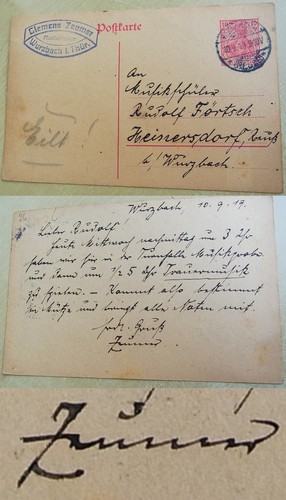 Clemens Zeumer
Wurzbach i. Thür.
Postkarte
An
Musikschüler
Rudolf Förtsch
Heinersdorf, Reuß
b/ Wurzbach.
Eilt!
Wurzbach, 10. 9. 19.
Lieber Rudolf!
Heute Mittwoch nachmittag um 3 Uhr
haben wir hier in der Turnhalle Musikprobe
und dann um ½ 5 Uhr Trauermusik
zu spielen. – Kommt also bestimmt
in Mütze und bringt alle Noten mit.
frdl. Gruß
Zeumer
Zeumer